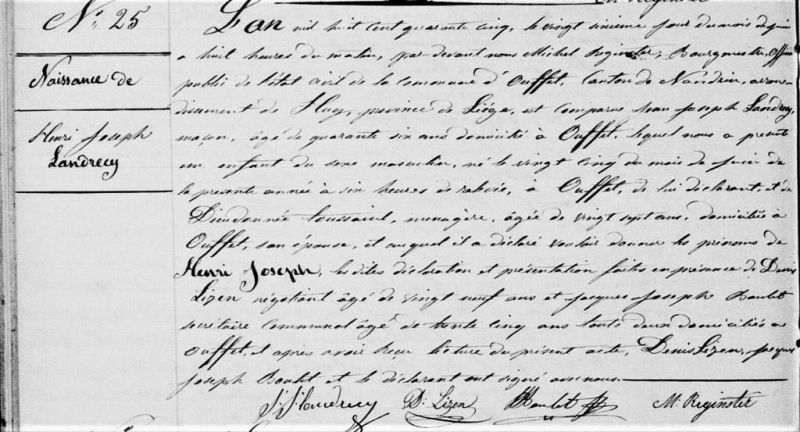 N.° 25
Naissance de
Henri Joseph
Landrecy
L'an mil huit cent quarante cinq, le vingt sixième jour du mois de juin
a huit heures du matin, par devant nous Michel Reginster, Bourgmestre, officier
public de l'état civil de la commune d'Ouffet, Canton de Nandrin, arron-
dissement de Huy, province de Liége, est comparu Jean Joseph Landrecy,
maçon, âgé de quarante six ans domicilié à Ouffet, lequel nous a présenté
un enfant du sexe masculin, né le vingt cinq du mois de juin de
la présente année à six heures de relevée, à Ouffet, de lui déclarant, et de
Dieudonnée Toussaint, menagère, âgée de vingt sept ans, domiciliée à
Ouffet, son épouse, et auquel il a déclaré vouloir donner les prénoms de
Henri Joseph, les dites déclaration et présentation faites en présence de Denis
Lizen négotiant âgé de vingt neuf ans et Jacques Joseph Boulet
secrétaire communal âgé de trente cinq ans touts deux domiciliés a
Ouffet, et après avoir lecture du présent acte, Denis Lizen, Jacques
Joseph Boulet et le déclarant ont signé avec nous.
J. J. Landrecy D. Lizen Boulet M. Reginster